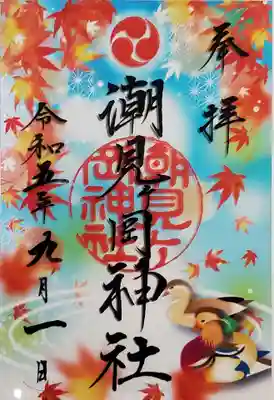 奉拝
潮見ヶ岡神社
潮見ヶ岡神社
令和五年九月一日